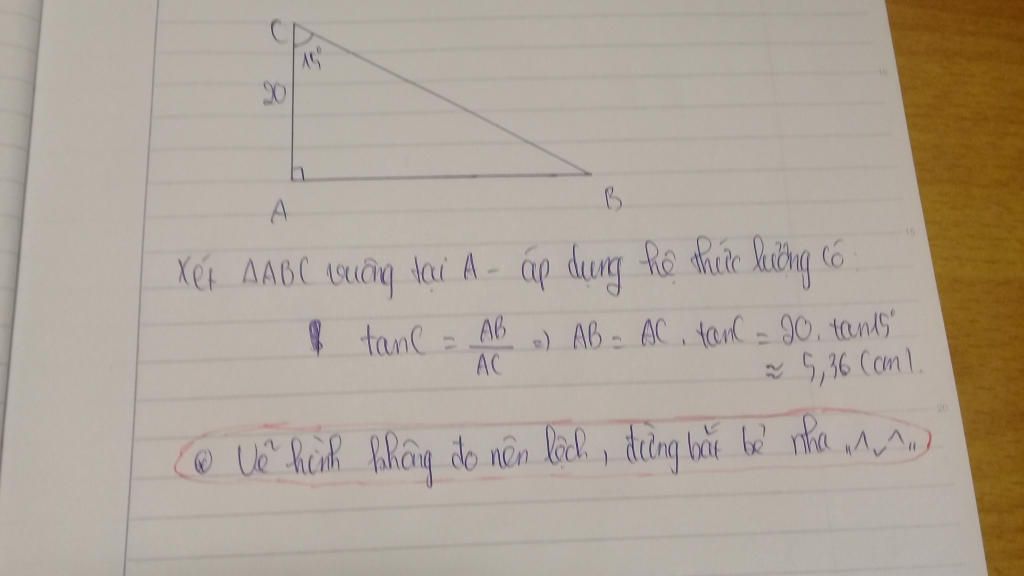 C
15°
20
A
B
Xét ΔABC vuông tại A - áp dụng hệ thức lượng có:
tanC = AB/AC => AB = AC . tanC = 20. tan15°
≈ 5,36 (cm).
Vẽ hình không đo nên lệch, đừng bắt bẻ nha "^v^"